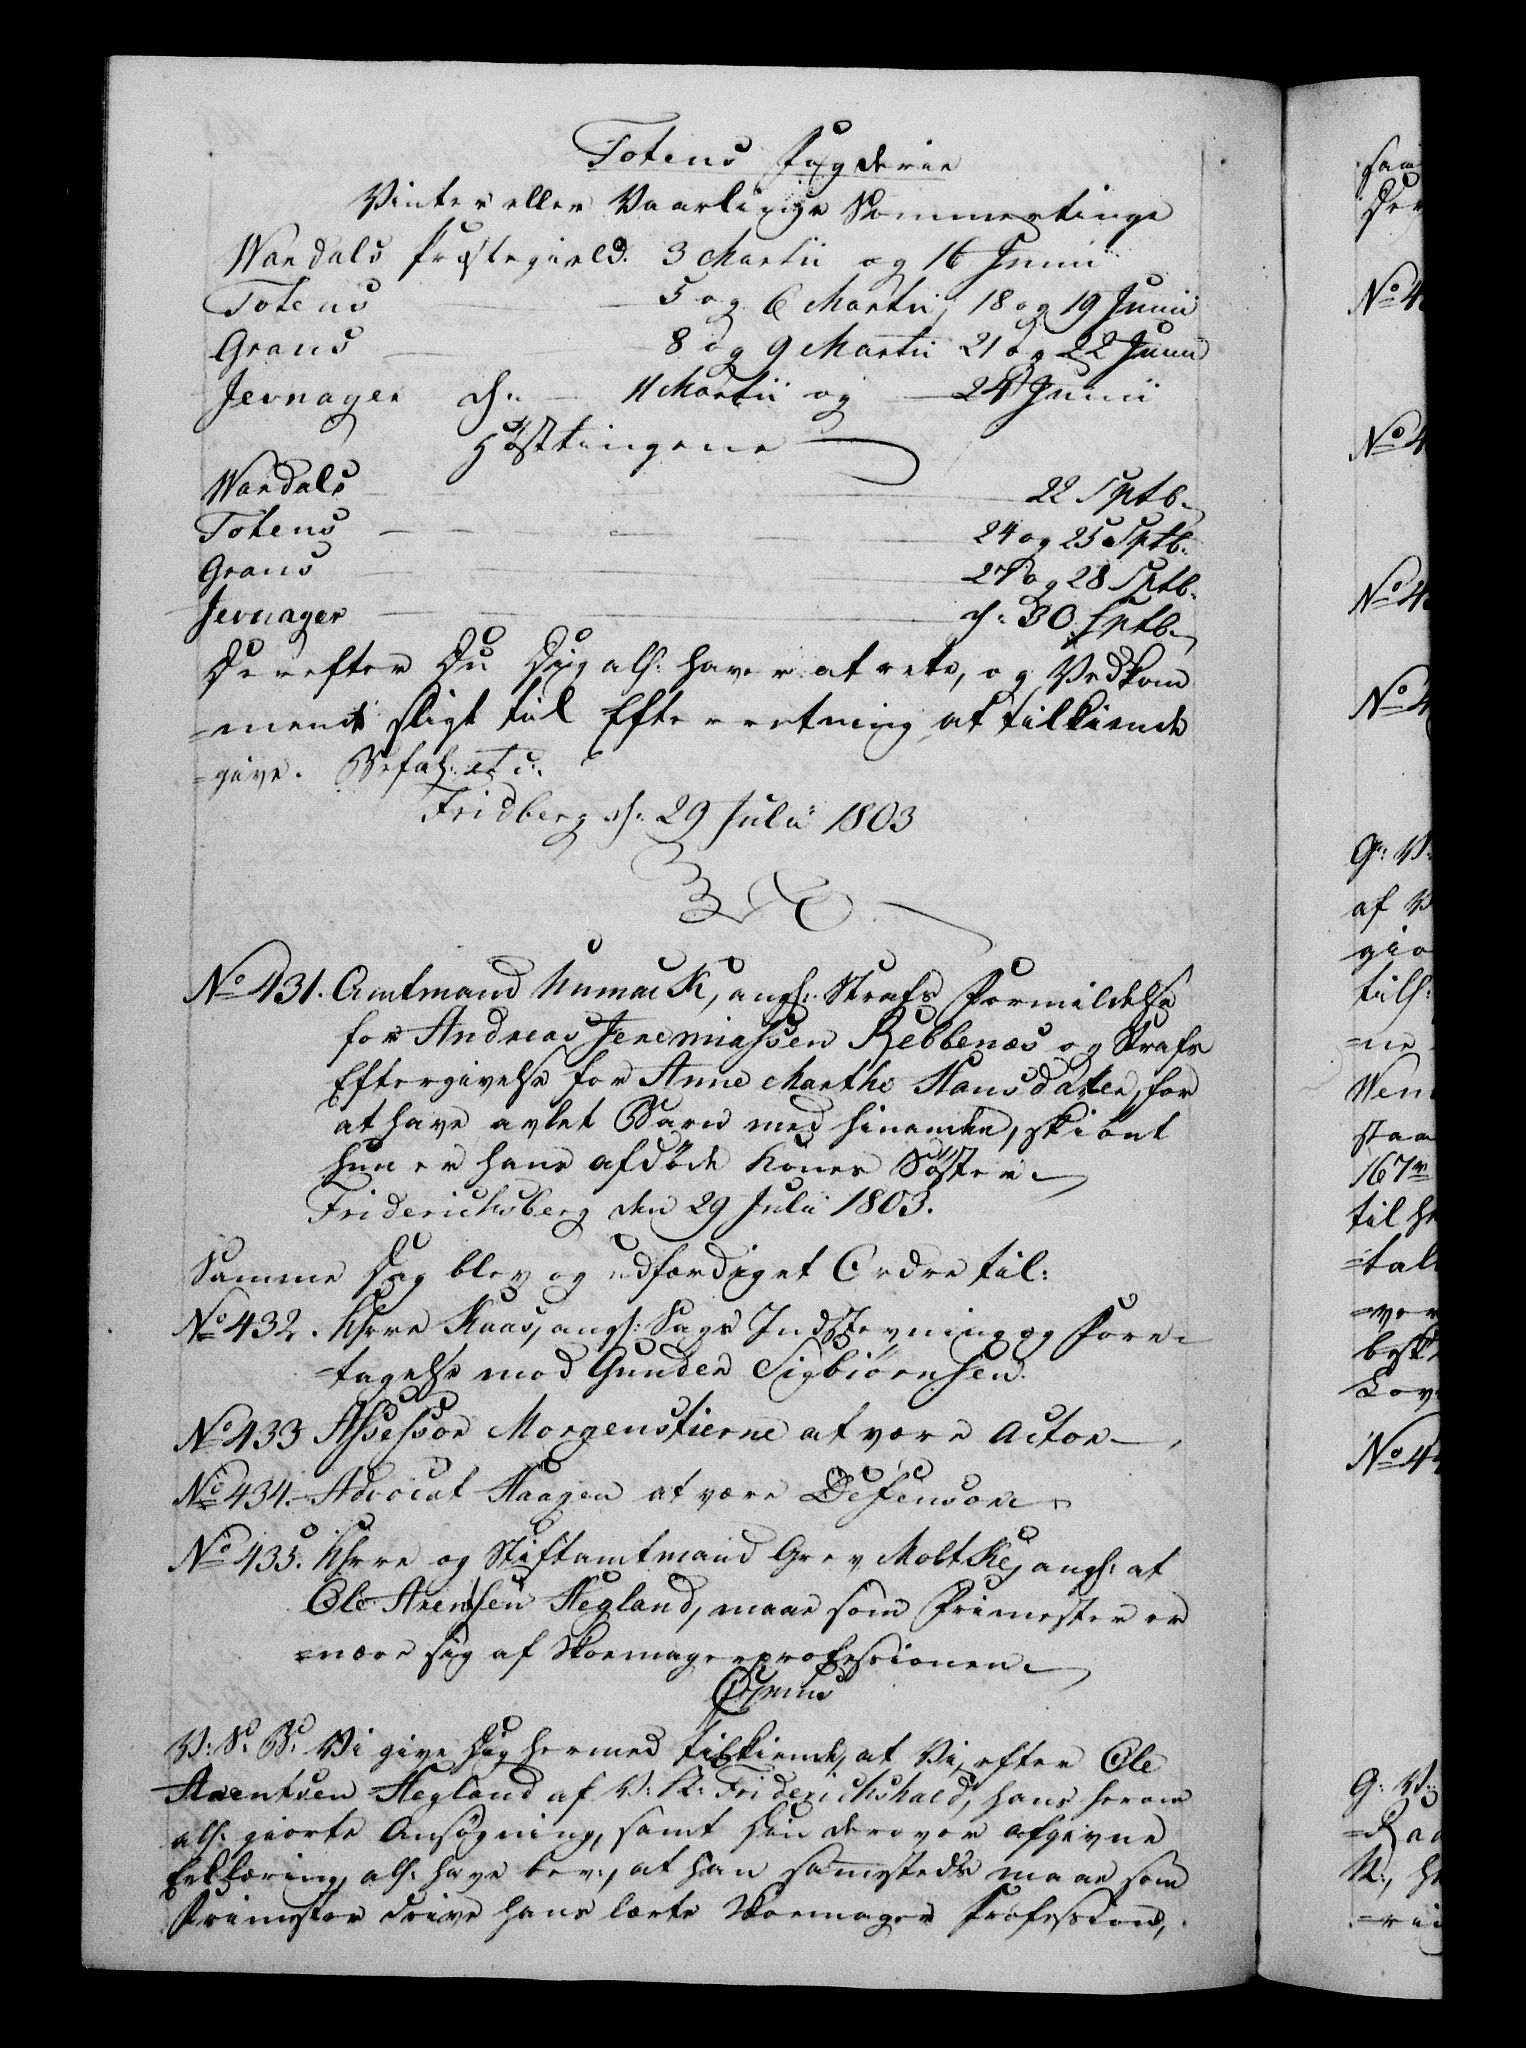 Totens Fogderie
Vinter eller Vaartinge Sommertinge
Wardals Præstegield. 3 Martii og 16 Junii
Totens 5 og 6 Martii, 18 og 19 Junii
Grans 8 og 9 Martii 21 og 22 Junii
Jevnager d: 11 Martii og 24 Junii
Høsttingene
Wardals 22 Sptb.
Totens 24 og 25 Sptb.
Grans 27 og 28 Sptb.
Jevnager d: 30 Sptb.
Derefter Du Dig als: haver at rete, og Vedkom
=mende sligt til Efterretning at tilkiende
=give. Befal: etc:
Fridberg d: 29 Julii 1803
No 431. Amtmand Kumack, angl: Strafs Formildelse
for Andreas Jeremiassen Rebbenæs og Strafs
Eftergivelse for Anne Marthe Hansdatter, for
at have avlet Barn med hinanden, skiønt
hun er hans afdøde Kones Søster
Friderichsberg den 29 Julii 1803.
Samme Dag blev og udfærdiget Ordre til:
No 432. Khrre Kaas, angl: Sags Indstevning og Fore-
=tagelse mod Gunder Sigbiørnsen.
No 433 Assessor Morgenstierne at være Actor
No 434. Advocat Haagen at være Defensor
No 435. Khrre og Stiftamtmand Grev Moltke, angl: at
Ole Arentsen Hegland, maae som Frimester er
=nære sig af Skoemagerprofessionen
V: S: B: Vi give Dig hermed tilkiende, at Vi, efter Ole
Arentsen Hegland af V: K: Friderichshald, hans herom
als: giorte Ansøgning, samt Din derover afgivne
Erklæring, als: have bev:, at han samesteds maae som
Frimester drive hans lærte Skoemager Profession,